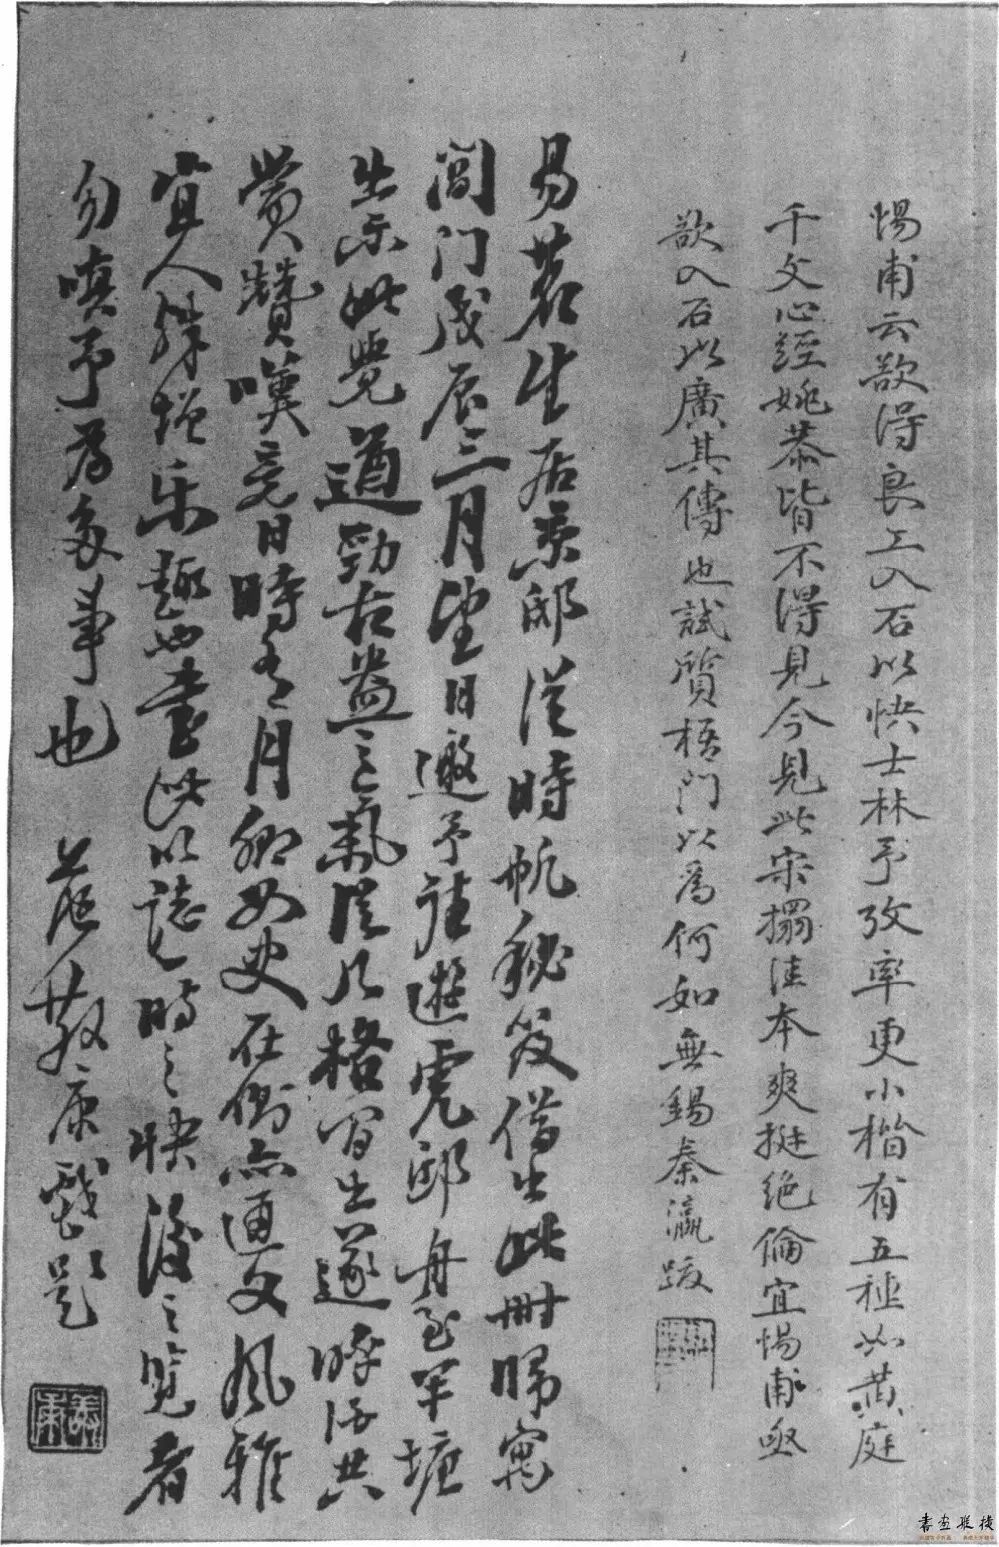 惕甫云欲得良工入石以快士林予攷率更小楷有五種如黃庭
千文心經姚恭皆不得見今見此宋搨佳本爽挺絕倫宜惕甫亟
欲入石以廣其傳也試質梧門以為何如無錫秦瀛跋
易茗生居京邸從時帆秘笈借出此冊歸寓
閶门戊辰三月望日邀予往遊虎邱舟至半塘
出示此覺遒勁古逸之氣從凡格習出遂呼酒共
賞贊嘆竟日時有月卿女史在側亦通文風雅
宜人殊增乐趣也書此以誌一時之快後之览者
勿嗔予為多事也 范散康戲題
書画联接